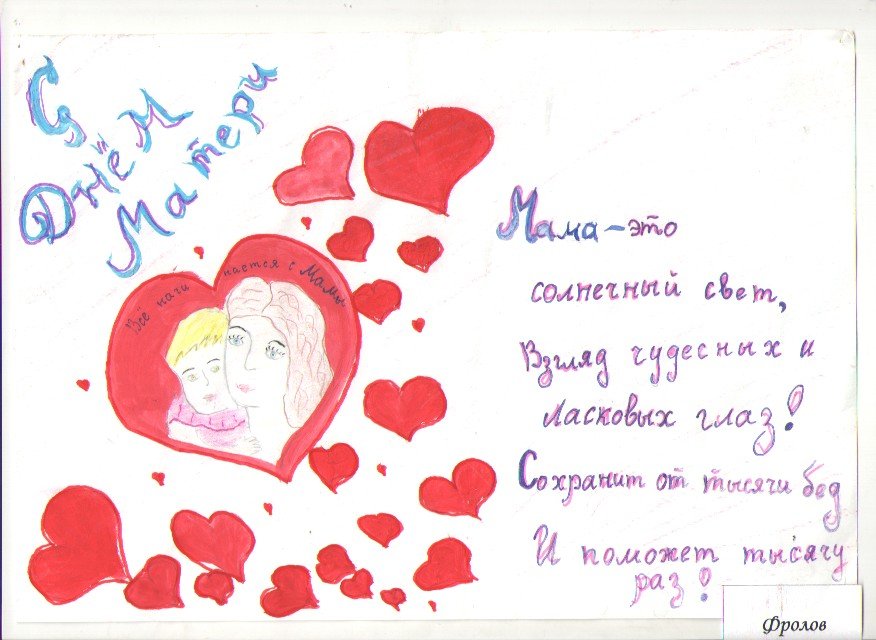 С
Днём
Матери
Всё начинается с Мамы
Мама – это
солнечный свет,
Взгляд чудесных и
ласковых глаз!
Сохранит от тысячи бед
И поможет тысячу
раз!
Фролов